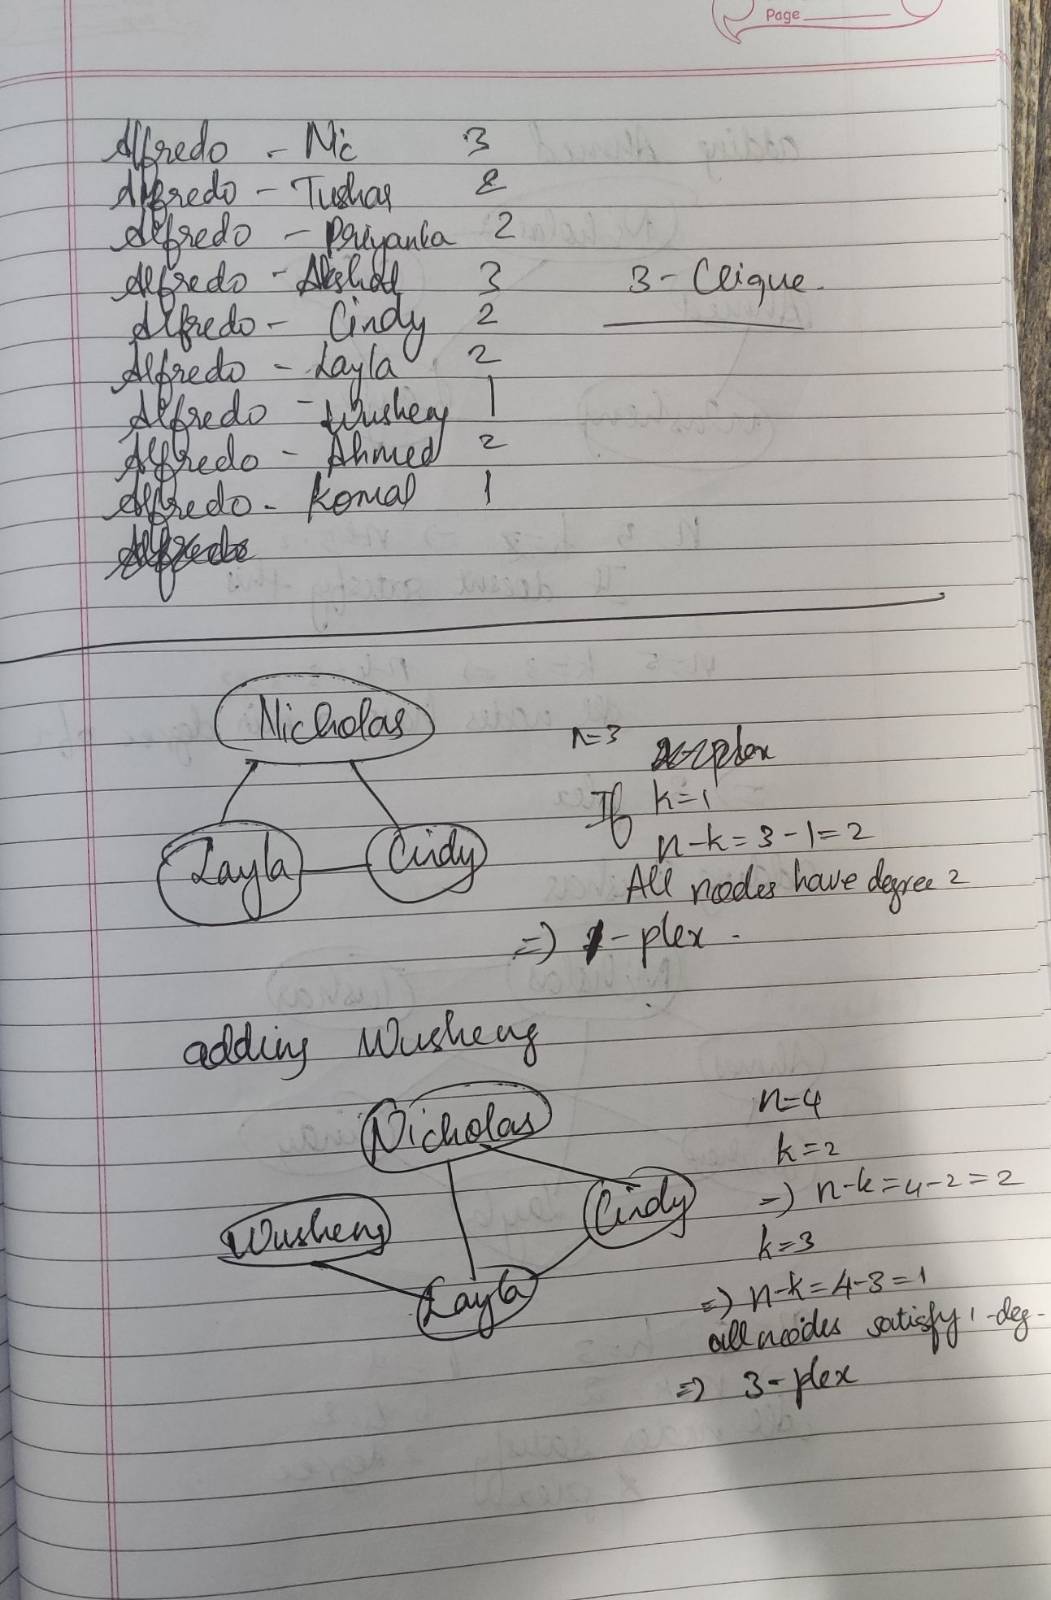 Page
Alfredo - Nic 3
Alfredo - Tushar 2
Alfredo - Priyanka 2
Alfredo - Akshat 3
3-Clique.
Alfredo - Cindy 2
Alfredo - Layla 2
Alfredo - Wusheng 1
Alfredo - Ahmed 2
Alfredo - Komal 1
Alfredo
Nicholas
Layla
Cindy
n=3
plex
If k=1
n-k=3-1=2
All nodes have degree 2
=) 1-plex.
adding Wusheng
Nicholas
Wusheng
Cindy
Layla
n=4
k=2
=) n-k=4-2=2
k=3
=) n-k=4-3=1
all nodes satisfy 1-deg-
=) 3-plex